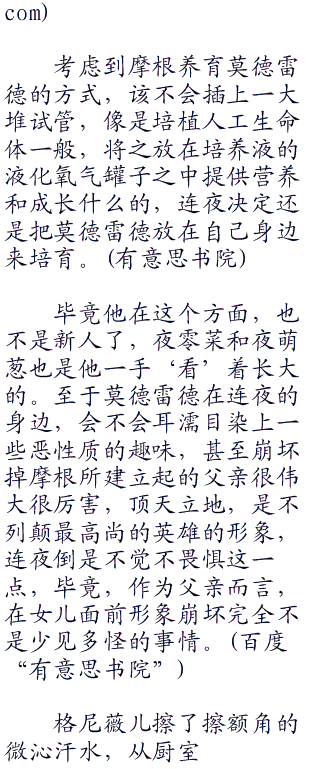 com)
考虑到摩根养育莫德雷
德的方式，该不会插上一大
堆试管，像是培植人工生命
体一般，将之放在培养液的
液化氧气罐子之中提供营养
和成长什么的，连夜决定还
是把莫德雷德放在自己身边
来培育。(有意思书院)
毕竟他在这个方面，也
不是新人了，夜零菜和夜萌
葱也是他一手‘看’着长大
的。至于莫德雷德在连夜的
身边，会不会耳濡目染上一
些恶性质的趣味，甚至崩坏
掉摩根所建立起的父亲很伟
大很厉害，顶天立地，是不
列颠最高尚的英雄的形象，
连夜倒是不觉不畏惧这一
点，毕竟，作为父亲而言，
在女儿面前形象崩坏完全不
是少见多怪的事情。(百度
“有意思书院”)
格尼薇儿擦了擦额角的
微沁汗水，从厨室